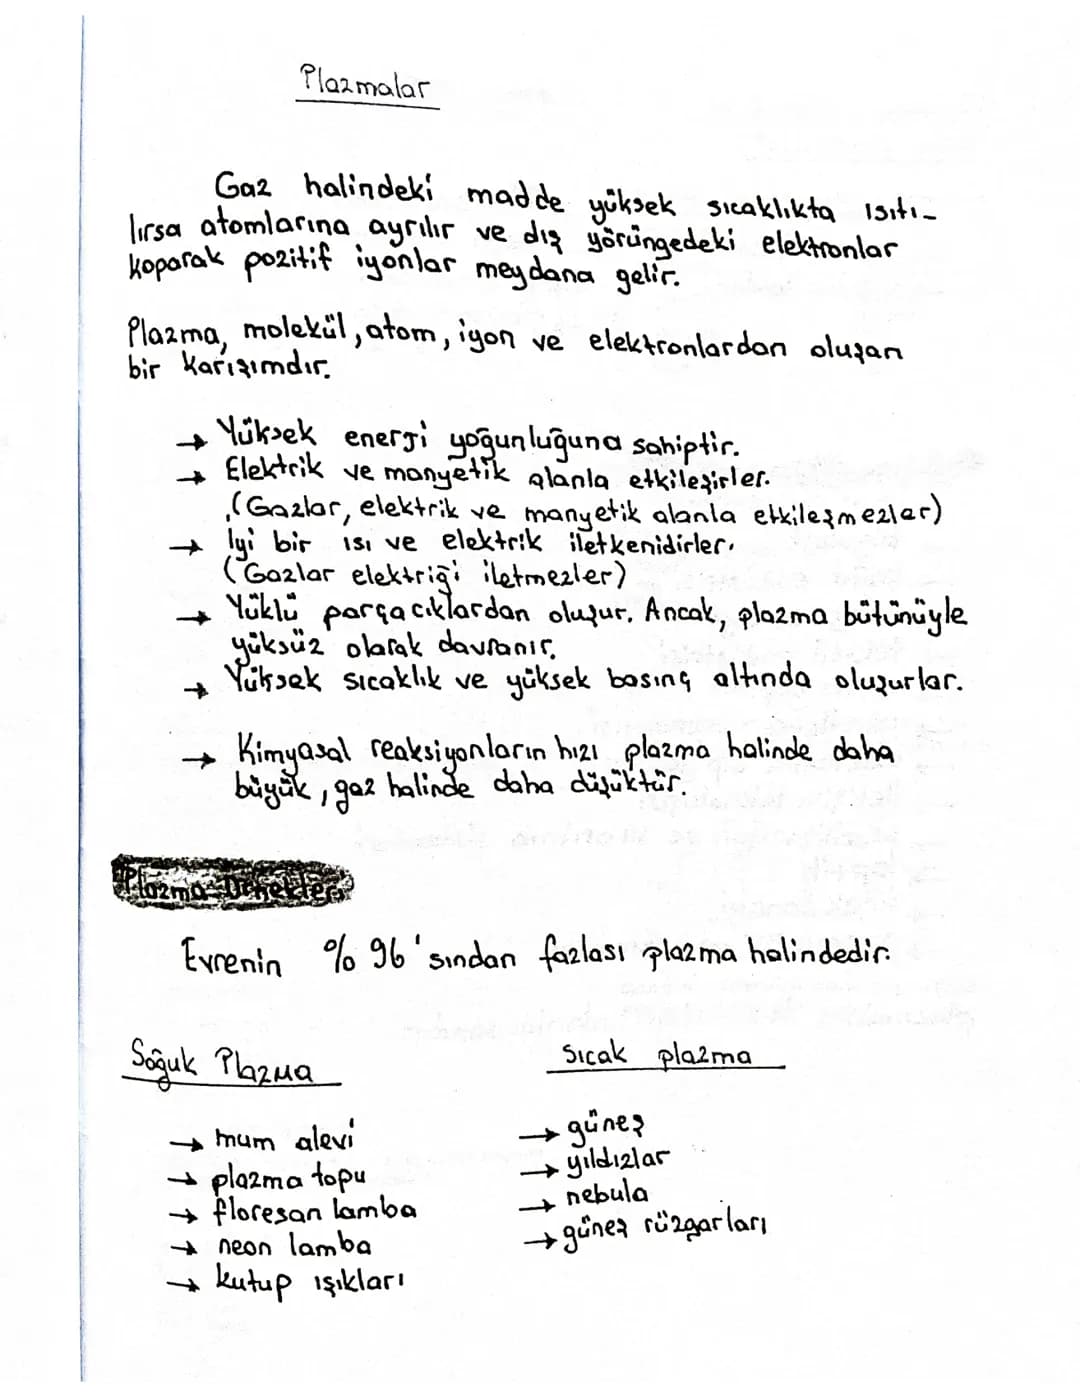 Plazmalar
Gaz halindeki madde yüksek sıcaklıkta ısıtı-
lırsa atomlarına ayrılır ve dış yörüngedeki elektronlar
koparak pozitif iyonlar meydana gelir.
Plazma, molekül, atom, iyon ve elektronlardan oluşan
bir karışımdır.
→ Yüksek enerji yoğunluğuna sahiptir.
→ Elektrik ve manyetik alanla etkileşirler.
(Gazlar, elektrik ve manyetik alanla etkileşmezler)
→ İyi bir ısı ve elektrik iletkenidirler.
(Gazlar elektriği iletmezler)
→ Yüklü parçacıklardan oluşur. Ancak, plazma bütünüyle
yüksüz olarak davranır.
→ Yüksek sıcaklık ve yüksek basınç altında oluşurlar.
→ Kimyasal reaksiyonların hızı plazma halinde daha
büyük, gaz halinde daha düşüktür.
Evrenin % 96'sından fazlası plazma halindedir.
Soğuk Plazma
Sıcak plazma
→ mum alevi
→ plazma topu
→ floresan lamba
→ neon lamba
→ kutup ışıkları
→ güneş
→ yıldızlar
→ nebula
→ güneş rüzgarları